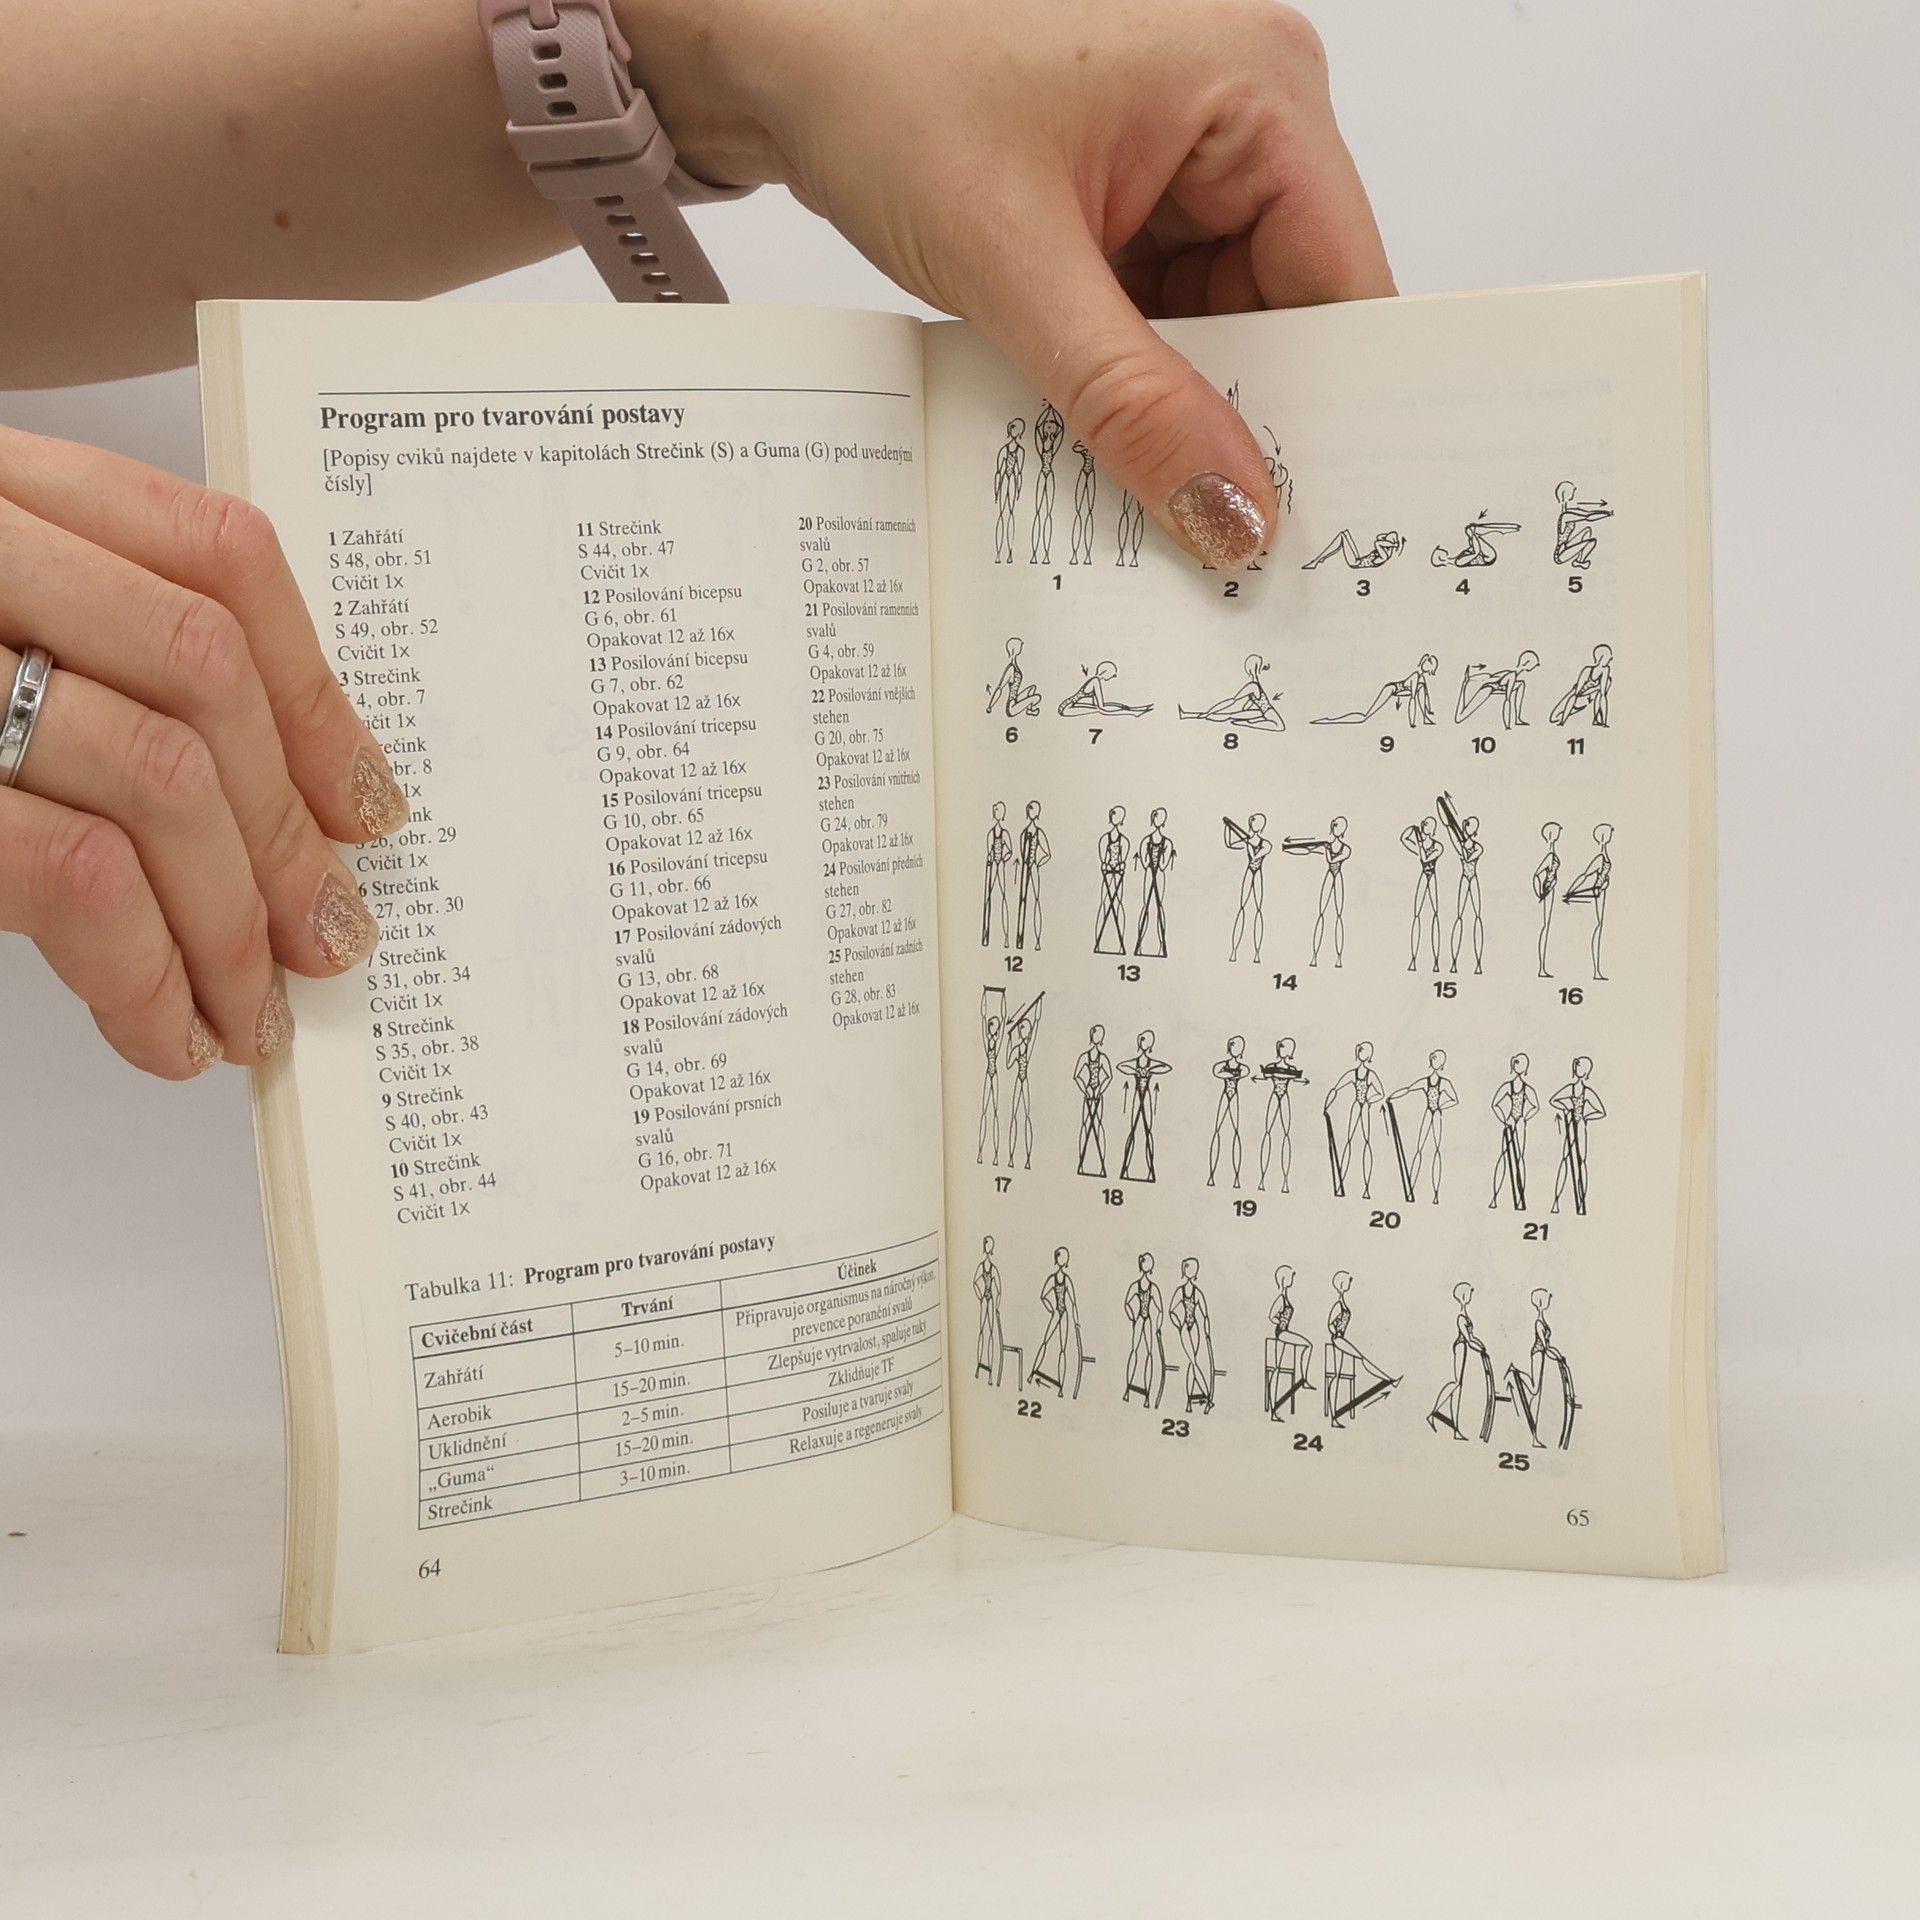 Program pro tvarování postavy
[Popisy cviků najdete v kapitolách Strečink (S) a Guma (G) pod uvedenými
čísly]
1 Zahřátí
S 48, obr. 51
Cvičit 1x
2 Zahřátí
S 49, obr. 52
Cvičit 1x
3 Strečink
4, obr. 7
1x
obr. 8
1x
obr. 29
Cvičit 1x
6 Strečink
27, obr. 30
1x
Strečink
S 31, obr. 34
Cvičit 1x
8 Strečink
S 35, obr. 38
Cvičit 1x
9 Strečink
S 40, obr. 43
Cvičit 1x
10 Strečink
S 41, obr. 44
Cvičit 1x
11 Strečink
S 44, obr. 47
Cvičit 1x
12 Posilování bicepsu
G 6, obr. 61
Opakovat 12 až 16x
13 Posilování bicepsu
G 7, obr. 62
Opakovat 12 až 16x
14 Posilování tricepsu
G 9, obr. 64
Opakovat 12 až 16x
15 Posilování tricepsu
G 10, obr. 65
Opakovat 12 až 16x
16 Posilování tricepsu
G 11, obr. 66
Opakovat 12 až 16x
17 Posilování zádových
svalů
G 13, obr. 68
Opakovat 12 až 16x
18 Posilování zádových
svalů
G 14, obr. 69
Opakovat 12 až 16x
19 Posilování prsních
svalů
G 16, obr. 71
Opakovat 12 až 16x
20 Posilování ramenních
svalů
G 2, obr. 57
Opakovat 12 až 16x
21 Posilování ramenních
svalů
G 4, obr. 59
Opakovat 12 až 16x
22 Posilování vnějších
stehen
G 20, obr. 75
Opakovat 12 až 16x
23 Posilování vnitřních
stehen
G 24, obr. 79
Opakovat 12 až 16x
24 Posilování předních
stehen
G 27, obr. 82
Opakovat 12 až 16x
25 Posilování zadních
stehen
G 28, obr. 83
Opakovat 12 až 16x
Tabulka 11: Program pro tvarování postavy
Cvičební část Trvání Účinek
Zahřátí 5–10 min. Připravuje organismus na náročný výkon,
prevence poranění svalů
Aerobik 15–20 min. Zlepšuje vytrvalost, spaluje tuky
Uklidnění 2–5 min. Zklidňuje TF
„Guma“ 15–20 min. Posiluje a tvaruje svaly
Strečink 3–10 min. Relaxuje a regeneruje svaly
64
1 2 3 4 5
6 7 8 9 10 11
12 13 14 15 16
17 18 19 20 21
22 23 24 25
65